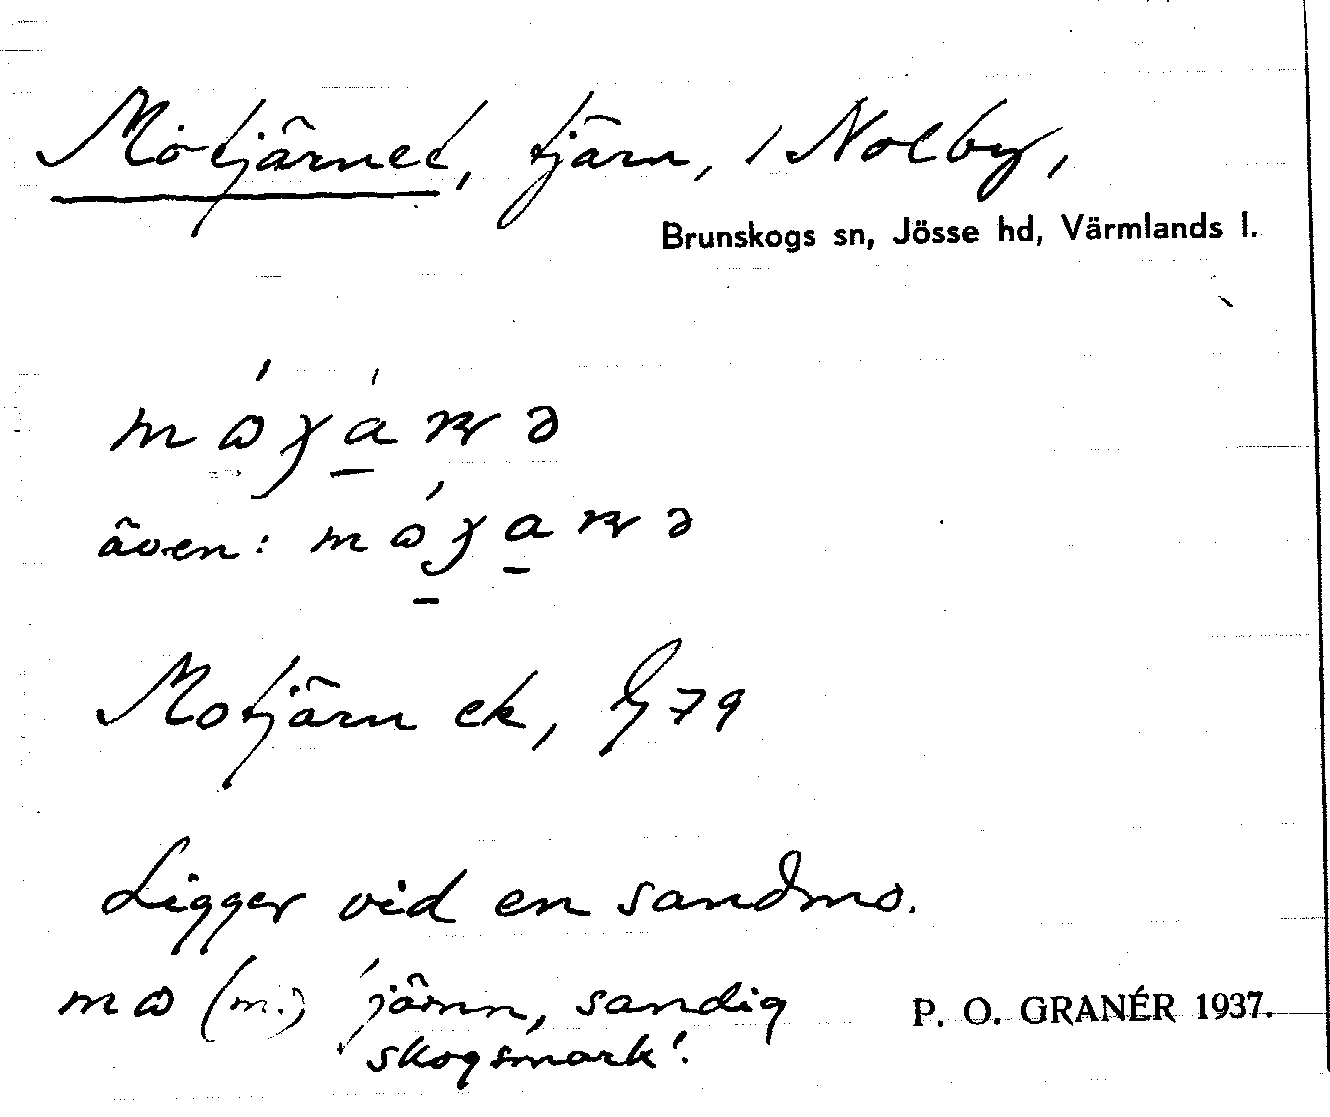 Motjärnet, tjärn, i Nolby,
Brunskogs sn, Jösse hd, Värmlands l.
även:
Motjärn ek, G 79
Ligger vid en sandmo.
mɷ (m.) 'jämn, sandig
skogsmark'.
P. O. GRANÉR 1937.